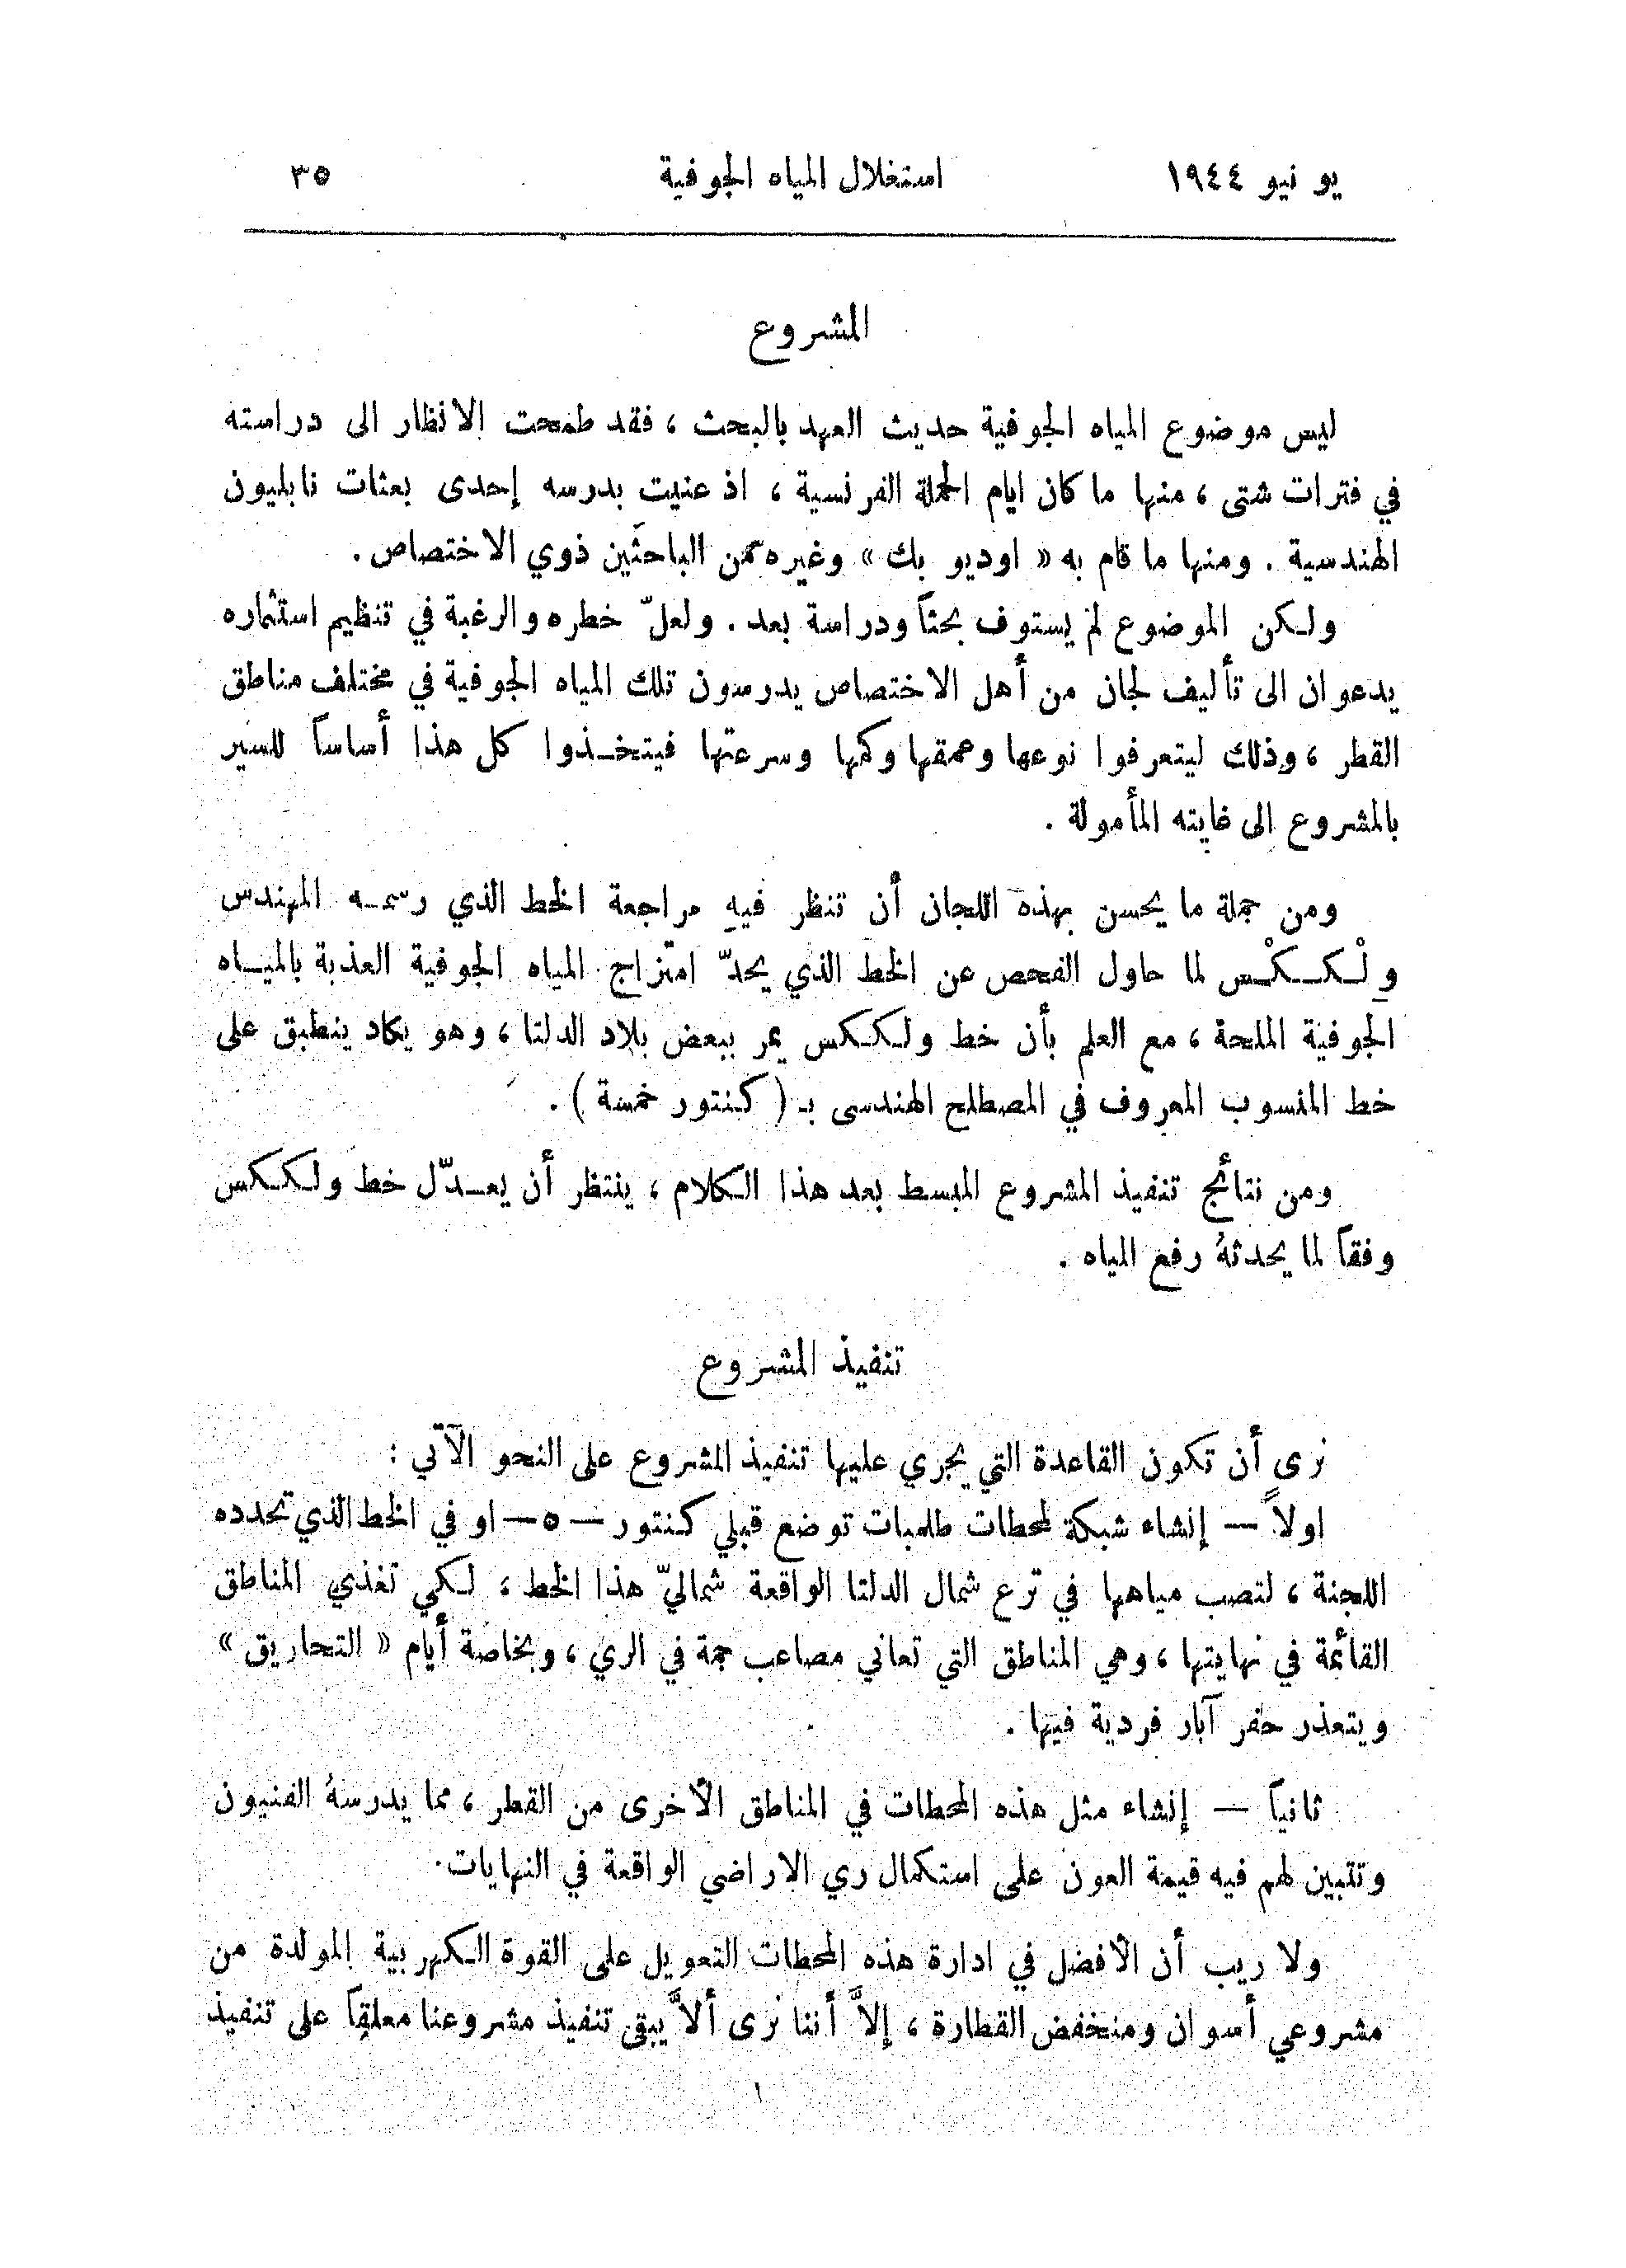 يونيو ١٩٤٤ استغلال المياه الجوفية ٣٥
المشروع
ليس موضوع المياه الجوفية حديث العهد بالبحث ، فقد طمحت الانظار الى دراسته
في فترات شتى ، منها ما كان ايام الحملة الفرنسية ، اذ عنيت بدرسه إحدى بعثات نابليون
الهندسية . ومنها ما قام به « اوديو بك » وغيره من الباحثين ذوي الاختصاص .
ولكن الموضوع لم يستوف بحثاً ودراسة بعد . ولعلّ خطره والرغبة في تنظيم استثماره
يدعوان الى تأليف لجان من أهل الاختصاص يدرسون تلك المياه الجوفية في مختلف مناطق
القطر ، وذلك ليتعرفوا نوعها وعمقها وكمها وسرعتها فيتخذوا كل هذا أساساً للسير
بالمشروع إلى غايته المأمولة .
ومن جملة ما يحسن بهذه اللجان أن تنظر فيهِ مراجعة الخط الذي رسمه المهندس
وِلْككْس لما حاول الفحص عن الخط الذي يحدّ امتزاج المياه الجوفية العذبة بالمياه
الجوفية الملحة ، مع العلم بأن خط ولككس يمر ببعض بلاد الدلتا ، وهو يكاد ينطبق على
خط المنسوب المعروف في المصطلح الهندسى بـ ( كنتور خمسة ) .
ومن نتائج تنفيذ المشروع المبسط بعد هذا الكلام ، ينتظر أن يعدّل خط ولككس
وفقاً لما يحدثهُ رفع المياه .
تنفيذ المشروع
نرى أن تكون القاعدة التي يجري عليها تنفيذ المشروع على النحو الآتي :
اولاً — إنشاء شبكة لمحطات طلمبات توضع قبلي كنتور — ٥ — او في الخط الذي تحدده
اللجنة ، لتصب مياهها في ترع شمال الدلتا الواقعة شماليّ هذا الخط ، لكي تغذي المناطق
القائمة في نهايتها ، وهي المناطق التي تعاني مصاعب جمة في الري ، وبخاصة أيام « التحاريق »
ويتعذر حفر آبار فردية فيها .
ثانياً — إنشاء مثل هذه المحطات في المناطق الأخرى من القطر ، مما يدرسهُ الفنيون
وتتبين لهم فيه قيمة العون على استكمال ري الاراضي الواقعة في النهايات .
ولا ريب أن الأفضل في ادارة هذه المحطات التعويل على القوة الكهربية المولدة من
مشروعي أسوان ومنخفض القطارة ، إلاَّ أننا نرى ألاَّ يبقى تنفيذ مشروعنا معلقاً على تنفيذ